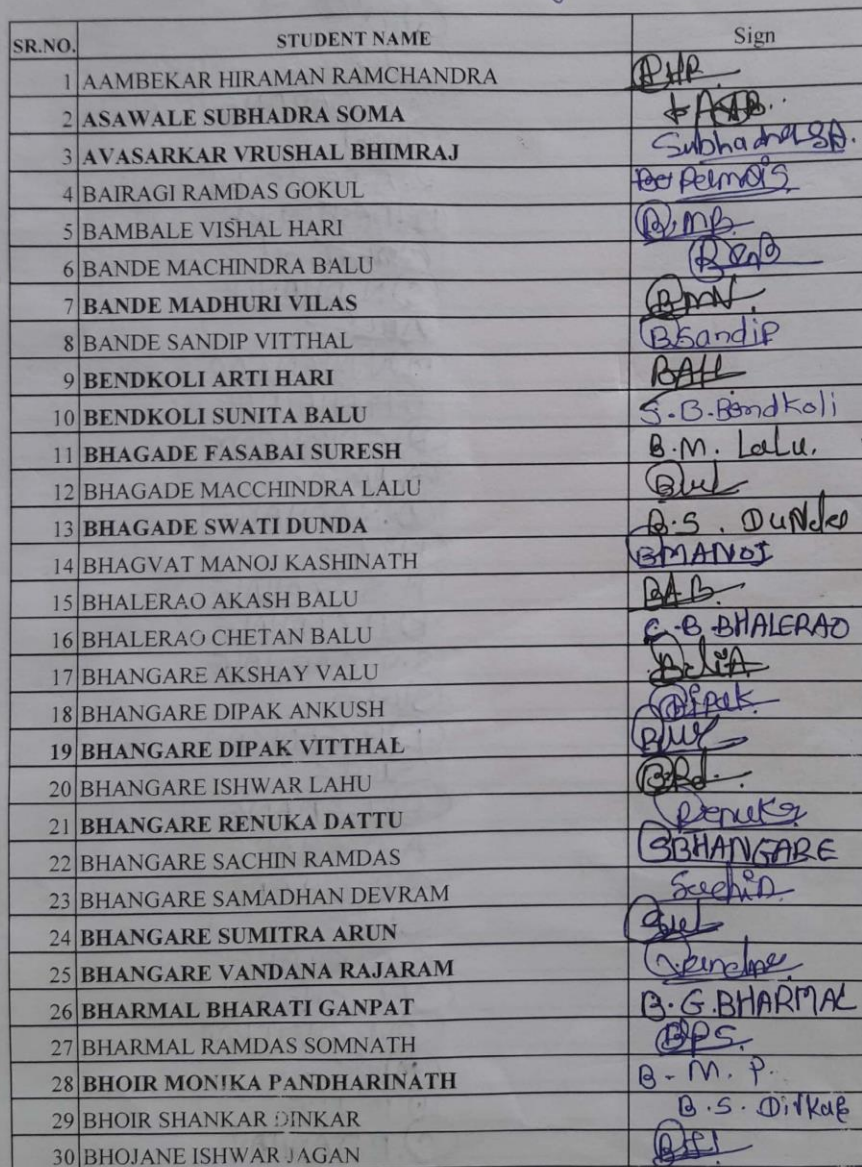 SR.NO. STUDENT NAME Sign
1 AAMBEKAR HIRAMAN RAMCHANDRA
2 ASAWALE SUBHADRA SOMA
3 AVASARKAR VRUSHAL BHIMRAJ Subhadra SA.
4 BAIRAGI RAMDAS GOKUL
5 BAMBALE VISHAL HARI
6 BANDE MACHINDRA BALU
7 BANDE MADHURI VILAS BMN
8 BANDE SANDIP VITTHAL BSandip
9 BENDKOLI ARTI HARI BAH
10 BENDKOLI SUNITA BALU S.B.Bendkoli
11 BHAGADE FASABAI SURESH B.M. Lalu.
12 BHAGADE MACCHINDRA LALU
13 BHAGADE SWATI DUNDA B.S. DUNda
14 BHAGVAT MANOJ KASHINATH BMANOJ
15 BHALERAO AKASH BALU BAB
16 BHALERAO CHETAN BALU C.B BHALERAO
17 BHANGARE AKSHAY VALU
18 BHANGARE DIPAK ANKUSH Dipak
19 BHANGARE DIPAK VITTHAL
20 BHANGARE ISHWAR LAHU
21 BHANGARE RENUKA DATTU Renuka
22 BHANGARE SACHIN RAMDAS SBHANGARE
23 BHANGARE SAMADHAN DEVRAM Sachin
24 BHANGARE SUMITRA ARUN
25 BHANGARE VANDANA RAJARAM
26 BHARMAL BHARATI GANPAT B.G.BHARMAL
27 BHARMAL RAMDAS SOMNATH BPS.
28 BHOIR MONIKA PANDHARINATH B-M.P.
29 BHOIR SHANKAR DINKAR B.S. Dinkar
30 BHOJANE ISHWAR JAGAN